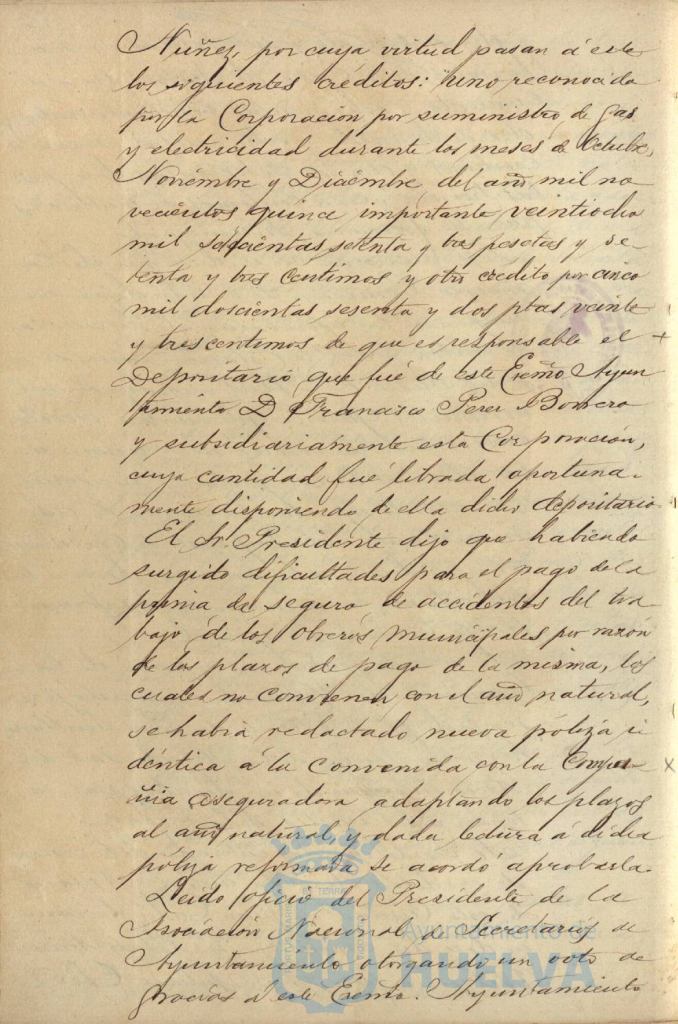 Nuñez, por cuya virtud pasan á este
los siguientes créditos: uno reconocido
por la Corporacion por suministro de gas
y electricidad durante los meses de Octubre,
Noviembre y Diciembre del año mil no
vecientos quince importante veintiocho
mil setenta y tres pesetas y se-
tenta y tres centimos y otro crédito por cinco
mil doscientas sesenta y dos ptas veinte
y tres centimos de que es responsable el +
Depositario que fué de este Excmo. Ayun
tamiento D Francisco Perez Borrero
y subsidiariamente esta Corporación,
cuya cantidad fué librada oportuna-
mente disponiendo de ella dicho depositario
El Sr. Presidente dijo que habiendo
surgido dificultades para el pago de la
prima de seguro de accidentes del tra-
bajo de los obreros municipales por razón
de los plazos de pago de la misma, los
cuales no convienen con el año natural,
se habia redactado nueva póliza i
déntica á la convenida con la Compa- x
ñia aseguradora adaptando los plazos
al año natural, y dada lectura á dicha
póliza reformada se acordó aprobarla.
Leido oficio del Presidente de la
Asociación Nacional de Secretarios de
Ayuntamiento otorgando un voto de
gracias á este Excmo. Ayuntamiento
Ayuntamiento de
HUELVA